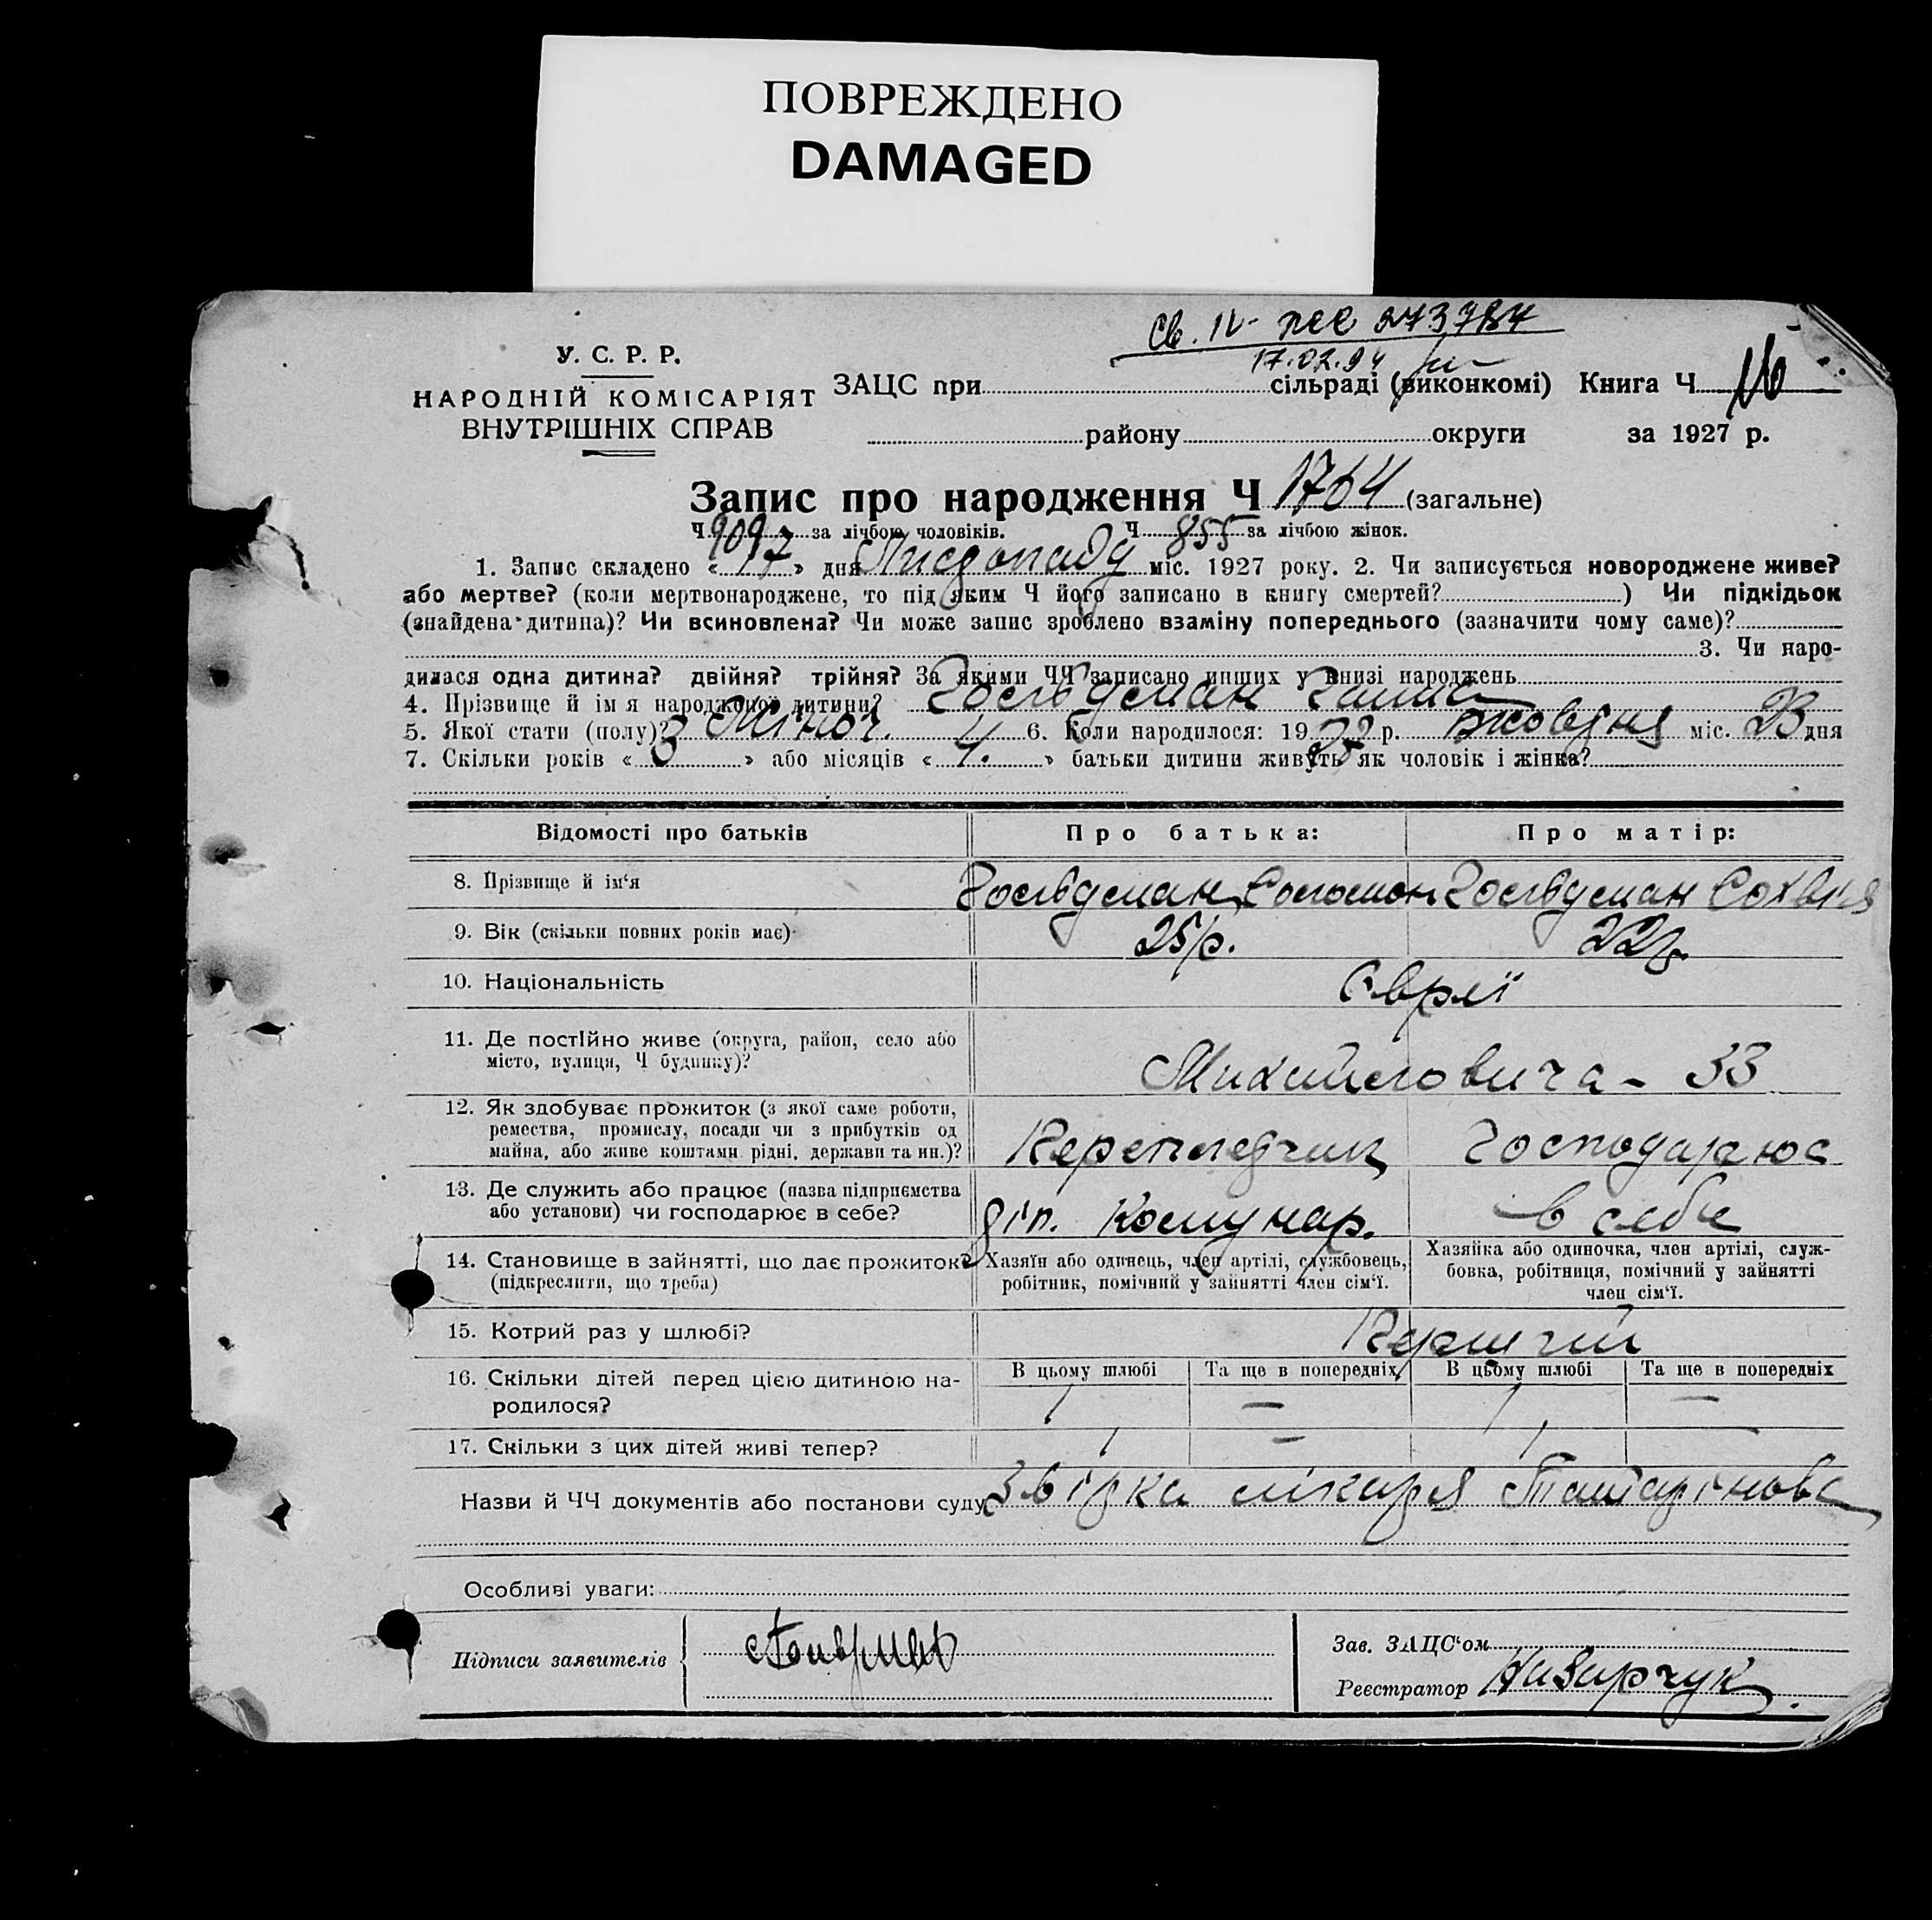 ПОВРЕЖДЕНО
DAMAGED
Св. IV- 273784
17.02.94
У. С. Р. Р.
НАРОДНІЙ КОМІСАРІЯТ
ВНУТРІШНІХ СПРАВ
ЗАЦС при сільраді (виконкомі) Книга Ч 16
району округи за 1927 р.
Запис про народження Ч 1764 (загальне)
Ч 909 за лічбою чоловіків. Ч 855 за лічбою жінок.
1. Запис складено « 17 » дня Листопаду міс. 1927 року. 2. Чи записується новороджене живе?
або мертве? (коли мертвонароджене, то під яким Ч його записано в книгу смертей? ) Чи підкідьок
(знайдена дитина)? Чи всиновлена? Чи може запис зроблено взаміну попереднього (зазначити чому саме)?
3. Чи наро-
дилася одна дитина? двійня? трійня? За якими ЧЧ записано инших у книзі народжень
4. Прізвище й ім я народженої дитини? Гольдсман
5. Якої стати (полу)? Жіноч. 6. Коли народилося: 19 27 р. Жовтня міс. 23 дня
7. Скільки років « 3 » або місяців « 4. » батьки дитини живуть як чоловік і жінка?
Відомості про батьків Про батька: Про матір:
8. Прізвище й ім‘я Гольдсман Соломон Гольдсман
9. Вік (скільки повних років має) 25 р. 22 р.
10. Національність Євреї
11. Де постІйно живе (округа, район, село або
місто, вулиця, Ч будинку)? Михайловича - 33
12. Як здобуває прожиток (з якої саме роботи,
ремества, промислу, посади чи з прибутків од
майна, або живе коштами рідні, держави та ин.)? Переплетчик Господарює
13. Де служить або працює (назва підприємства
або установи) чи господарює в себе? Комунар. в себе
14. Становище в зайнятті, що дає прожиток?
(підкреслити, що треба)
Хазяїн або одинець, член артілі, службовець,
робітник, помічний у зайнятті член сім‘ї.
Хазяйка або одиночка, член артілі, служ-
бовка, робітниця, помічний у зайнятті
член сім‘ї.
15. Котрий раз у шлюбі? Перший
16. Скільки дітей перед цією дитиною на-
родилося?
В цьому шлюбі Та ще в попередніх В цьому шлюбі Та ще в попередніх
1 — 1 —
17. Скільки з цих дітей живі тепер? 1 — 1 —
Назви й ЧЧ документів або постанови суду Звірка лікаря
Особливі уваги:
Підписи заявителів
Зав. ЗАЦС‘ом
Реєстратор Назарчук